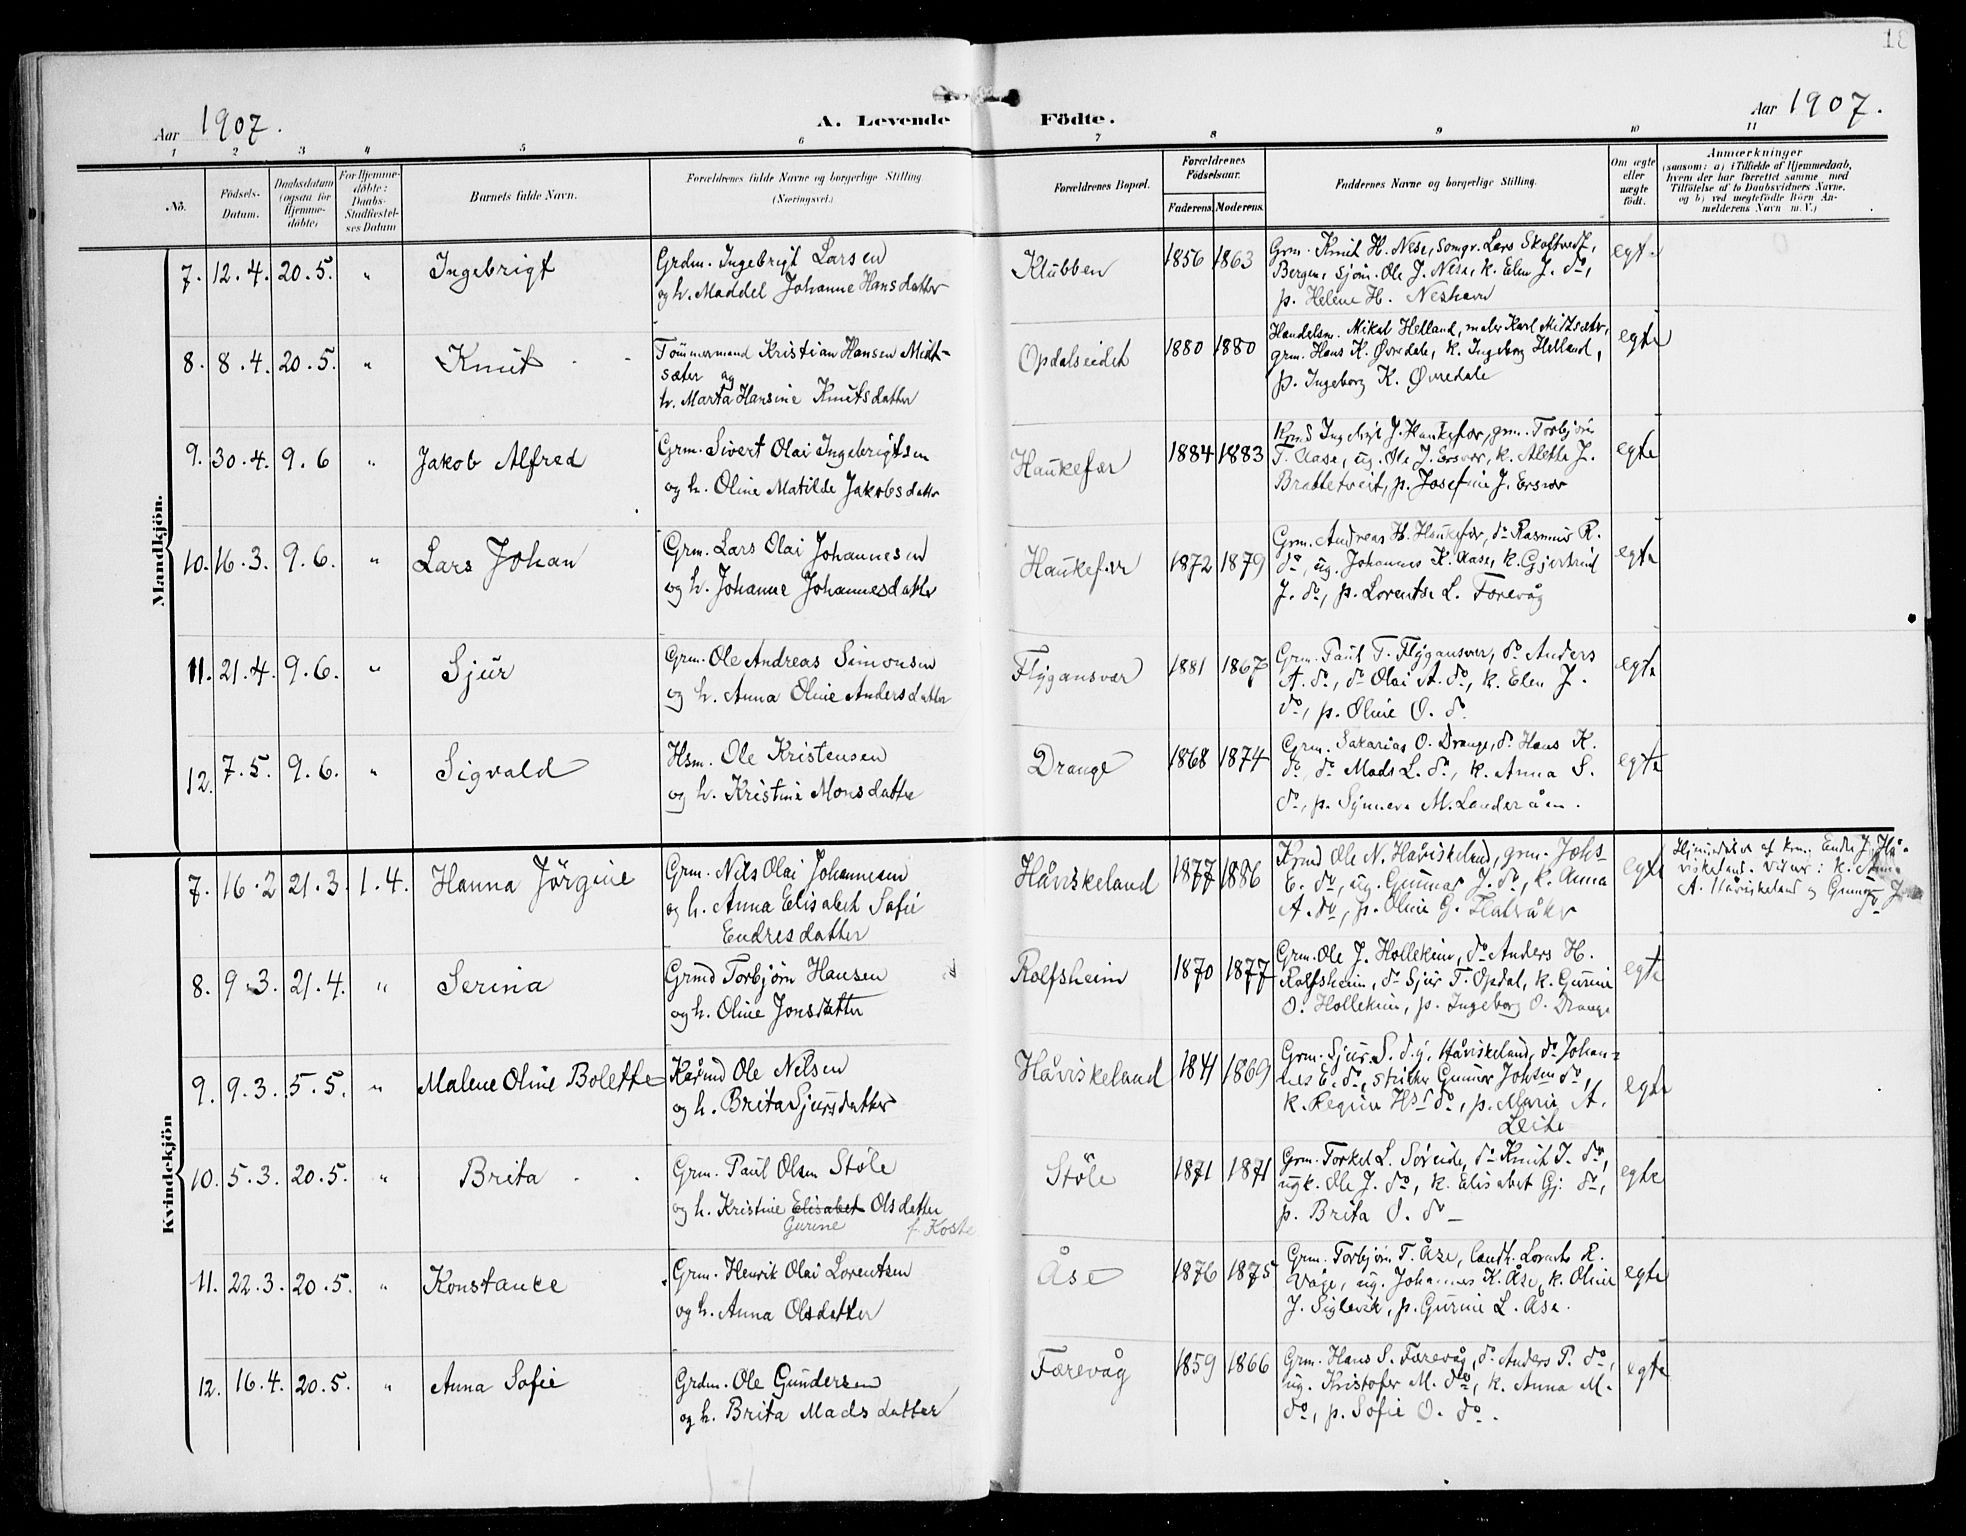 18
Aar 1907.
A. Levende Födte.
Aar 1907.
1 2 3 4 5 6 7 8 9 10 11
No.
Födsels-Datum.
Daabsdatum (ogsaa for Hjemmedöbte)
For Hjemmedöbte: Daabs-Stadfæstelses Datum
Barnets fulde Navn.
Forældrenes fulde Navne og borgerlige Stilling (Næringsvei.)
Forældrenes Bopæl.
Forældrenes Födselsaar.
Faderens. Moderens.
Faddernes Navne og borgerlige Stilling.
Om ægte eller uægte födt.
Anmærkninger
(saasom: a) i Tilfælde af Hjemmedaab, hvem der har forrettet samme med Tilföielse af to Daabsvidners Navne, og b) ved uægtefödte Börn Anmelderens Navn m. V.)
Mandkjön.
7. 12.4. 20.5. " Ingebrigt
Grdm. Ingebrigt Larsen
og h. Maddel Johanne Hansdatter
Klubben 1856 1863
Grm. Knut H. Nese, Somgr. Lars Skaftvedt,
Bergen, Sjöm. Ole J. Nese, k. Elen J. do,
p. Helene H. Neshavn
egt.
8. 8.4. 20.5. " Knut
Tömmermand Kristian Hansen Midt-
sæter og
h. Marta Hansine Knutsdatter
Opdalseidet 1880 1880
Handelsm. Mikal Helland, maler Karl Mitsæter,
grm. Hans K. Øvredale, k. Ingeborg Helland,
p. Ingeborg K. Øvredale
egte
9. 30.4. 9.6 " Jakob Alfred
Grm. Sivert Olai Ingebrigtsen
og h. Oline Matilde Jakobsdatter
Haukefær 1884 1883
J. Haukefær, grm. Torbjörn
T. Aase, ug. Ole J. Ersvær, k. Alette J.
Brattetveit, p. Josefine J. Ersvær
egte
10. 16.3. 9.6. " Lars Johan
Grm. Lars Olai Johannesen
og h. Johanne Johannesdatter
Haukefær 1872 1879
Grm. Andreas H. Haukefær, do Rasmus R.
do, ug. Johannes K. Aase, k. Gjertrud
J. do, p. Lorentse L. Færevåg
egte
11. 21.4. 9.6. " Sjur
Grm. Ole Andreas Simonsen
og h. Anna Oline Andersdatter
Flygansvær 1881 1867
Grm. Paul T. Flygansvær, do Anders
A. do, do Olai A. do, k. Elen J.
do, p. Oline O. do
egte
12. 7.5. 9.6. " Sigvald
Hsm. Ole Kristensen
og h. Kristine Monsdatter
Drange 1868 1874
Grm. Sakarias O. Drange, do Hans K.
do, do Mads L. do, k. Anna S.
do, p. Synneva M. Landeråen.
egte
Kvindekjön
7. 16.2 21.3. 1.4. Hanna Jörgine
Grm. Nils Olai Johannesen
og h. Anna Elisabet Sofie
Endresdatter
Håviskeland 1877 1886
Krmd Ole N. Håviskeland, grm. Johs
E. do, ug. Gunnar J. do, k. Anna
A. do, p. Oline G. Flatråker
egte
af krm. Endre J. Hå-
viskeland. Vidner: k. Anna
A. Håviskeland og Gunnar J. do
8. 9.3. 21.4. " Serina
Grmd Torbjörn Hansen
og h. Oline Jonsdatter
Rolfsheim 1870 1877
Grm. Ole J. Hollekim, do Anders H.
Rolfsheim, do Sjur T. Opdal, k. Gurine
O. Hollekim, p. Ingeborg O. Drange
egte
9. 9.3. 5.5. " Malene Oline Bolette
Kårmd Ole Nilsen
og h. Brita Sjursdatter
Håviskeland 1841 1869
Grm. Sjur S. d.y. Håviskeland, do Johan-
nes E. do, Gunnar Johsen do,
k. Regine Hs do, p. Marie A.
Leite
egte
10. 5.3. 20.5. " Brita
Grm. Paul Olsen Stöle
og h. Kristine Elisabet Olsdatter
Gurine f. Koste
Stöle 1871 1871
Grm. Torkel L. Söreide, do Knut J. do,
ugk. Ole J. do, k. Elisabet Gj. do,
p. Brita O. do
egte
11. 22.3. 20.5. " Konstance
Grm. Henrik Olai Lorentsen
og h. Anna Olsdatter
Åse 1876 1875
Grm. Torbjörn T. Åse, landh. Lorents R.
Våge, ug. Johannes K. Åse, k. Oline
J. Siglevik, p. Gurine L. Åse.
egte
12. 16.4. 20.5. " Anna Sofie
Grdm. Ole Gundersen
og h. Brita Madsdatter
Færevåg 1859 1866
Grm. Hans S. Færevåg, do Anders P. do,
ug. Kristofer M. do, k. Anna M.
do, p. Sofie O. do.
egte